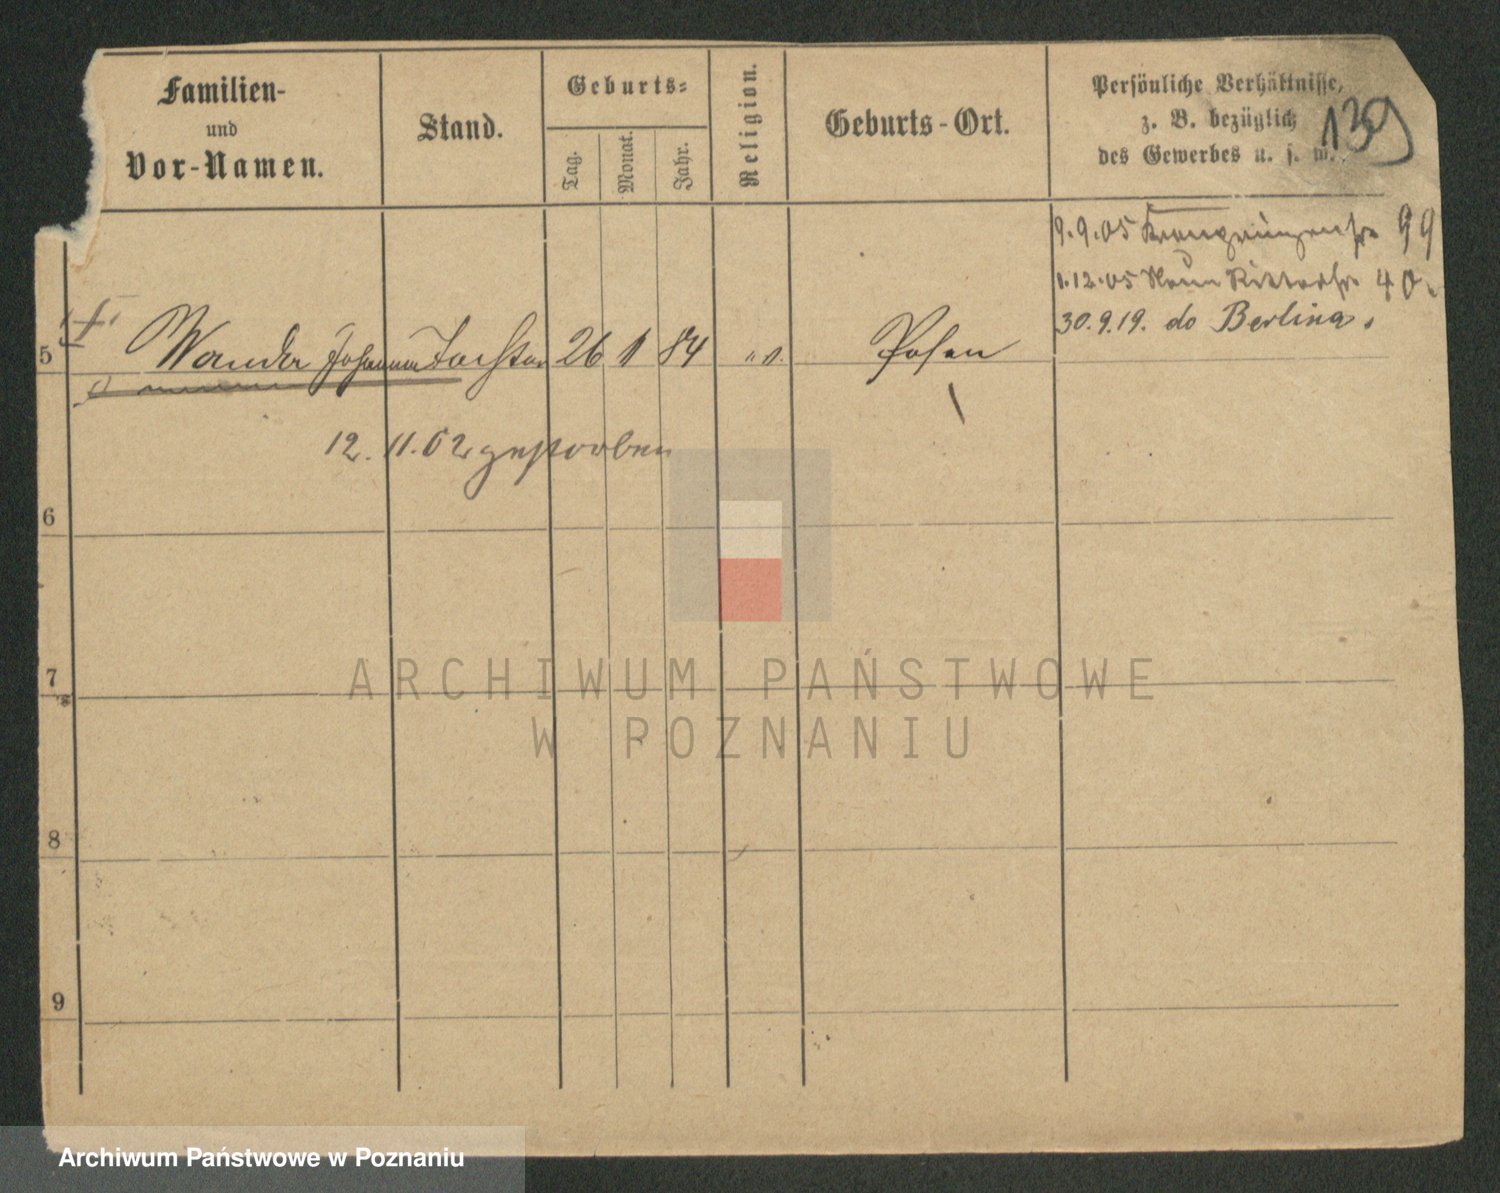 Familien-
und
Vor-Namen.
Stand.
Geburts-
Tag.
Monat.
Jahr.
Religion.
Geburts-Ort.
Persönliche Verhältnisse,
z. B. bezüglich
des Gewerbes u. s. w.
139
9.9.05 Kronprinzenstr 99
1.12.05 Neue Ritterstr 40.
30.9.19. do Berlina.
5 Wanda Johanna Tochter 26 1 84 Posen
12.11.02 gestorben
6
7
8
9
ARCHIWUM PAŃSTWOWE
W POZNANIU
Archiwum Państwowe w Poznaniu